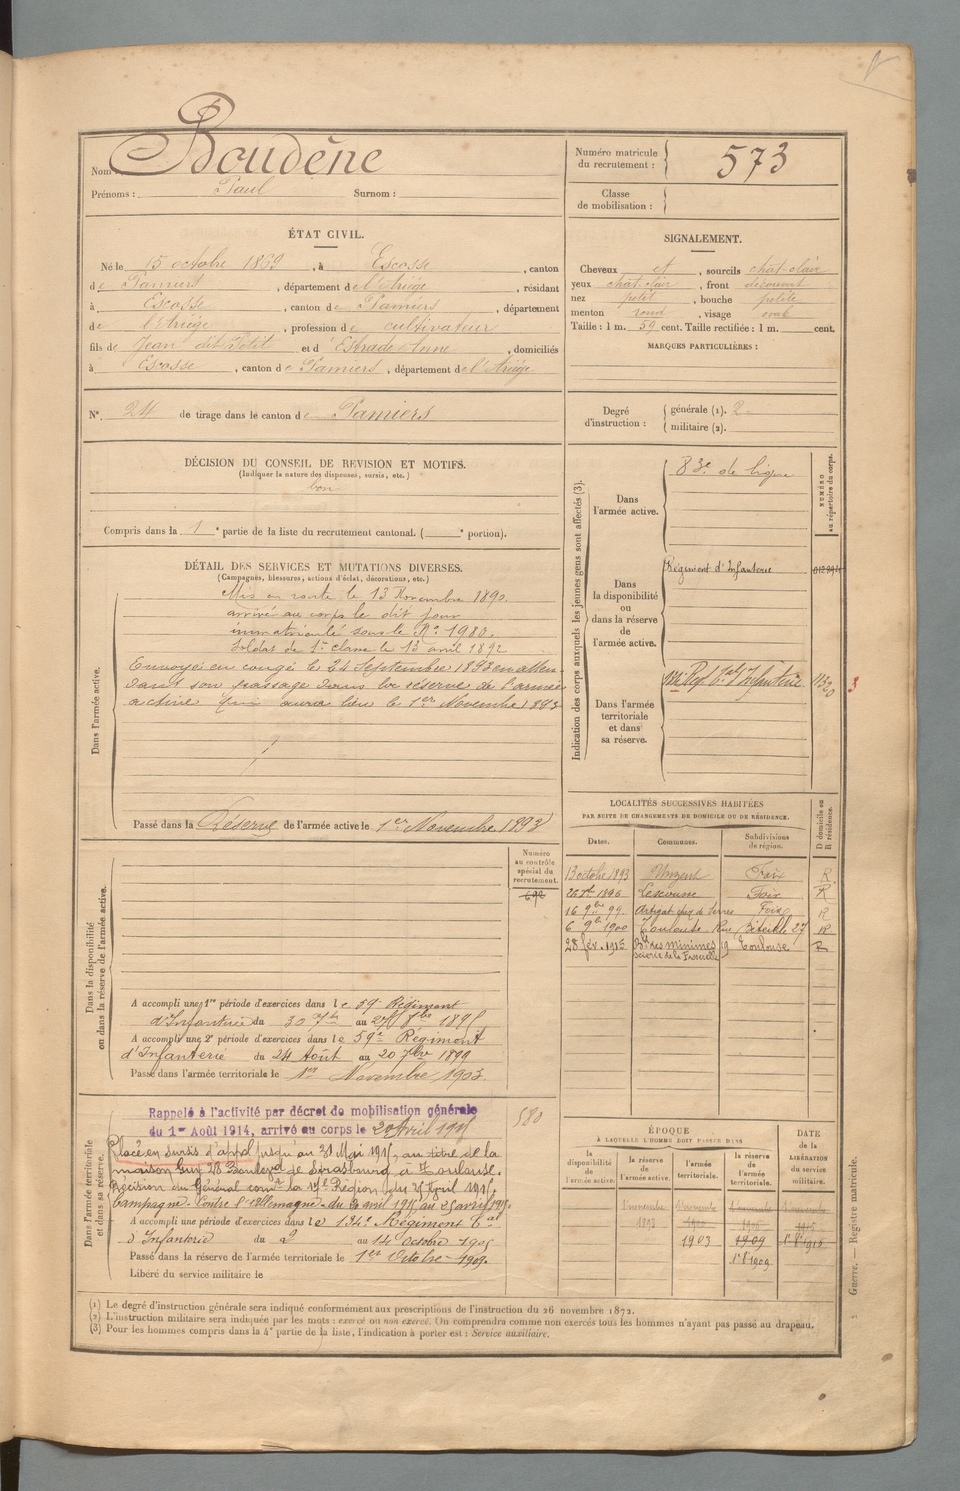 Nom Boudène
Prénoms : Paul Surnom :
Numéro matricule du recrutement : 573
Classe de mobilisation :
ÉTAT CIVIL.
Né le 15 octobre 1869, à Escosse, canton
de Pamiers, département de l'Ariège, résidant
à Escosse, canton de Pamiers, département
de l'Ariège, profession de cultivateur
fils de Jean dit Petit et d'Estrade Anne, domiciliés
à Escosse, canton de Pamiers, département de l'Ariège
N° 24 de tirage dans le canton de Pamiers
SIGNALEMENT.
Cheveux et, sourcils chat-clair
yeux chat. clair, front découvert
nez petit, bouche petite
menton rond, visage oval
Taille : 1 m. 59 cent. Taille rectifiée : 1 m. cent.
MARQUES PARTICULIÈRES :
Degré d'instruction : générale (1). 2
militaire (2).
DÉCISION DU CONSEIL DE REVISION ET MOTIFS.
(Indiquer la nature des dispenses, sursis, etc.)
bon
Compris dans la 1e partie de la liste du recrutement cantonal. ( e portion).
DÉTAIL DES SERVICES ET MUTATIONS DIVERSES.
(Campagnes, blessures, actions d'éclat, décorations, etc.)
Dans l'armée active.
Mis en route le 13 Novembre 1890.
arrivé au corps le dit jour
immatriculé sous le No. 1980.
Soldat de 1re classe le 13 avril 1892
Envoyé en congé le 24 Septembre 1893 en atten-
dant son passage dans la réserve de l'armée
active qui aura lieu le 1er Novembre 1893
Passé dans la Réserve de l'armée active le 1er Novembre 1893
Indication des corps auxquels les jeunes gens sont affectés (3).
NUMÉRO au répertoire du corps.
Dans l'armée active.
83e de ligne
Dans la disponibilité ou dans la réserve de l'armée active.
Régiment d'Infanterie
Dans l'armée territoriale et dans sa réserve.
LOCALITÉS SUCCESSIVES HABITÉES
PAR SUITE DE CHANGEMENTS DE DOMICILE OU DE RÉSIDENCE.
D domicile ou R résidence.
Dates. Communes. Subdivisions de région.
13 octobre 1893 Unzent Foix R
1896 Lescousse Foix R
16 9bre 99. Artigat Foix R
6 9b 1900 Toulouse Rue 27 R
28 fév. 1913 des minimes 19 Toulouse R
Dans la disponibilité ou dans la réserve de l'armée active.
Numéro au contrôle spécial du recrutement.
692
A accompli une 1re période d'exercices dans le 59e Régiment
d'Infanterie du 30 7bre au 27 8bre 1895
A accompli une 2e période d'exercices dans le 59e Régiment
d'Infanterie du 24 Août au 20 7bre 1899
Passé dans l'armée territoriale le 1er Novembre 1903.
Dans l'armée territoriale et dans sa réserve.
580
Rappelé à l'activité par décret de mobilisation générale
du 1er Août 1914, arrivé au corps le 20 Avril 1915
Placé en sursis d'appel jusqu'au 31 Mai 1915, au titre de la
maison Guy 28 Boulevard de Strasbourg, à Toulouse.
Décision du Général comdt la 17e Région du 25 Avril 1915.
Campagne. Contre l'Allemagne. du 20 avril 1915 au 25 avril 1915.
A accompli une période d'exercices dans le 134e Régiment tal
d'Infanterie du 2 au 14 octobre 1905
Passé dans la réserve de l'armée territoriale le 1er Octobre 1909.
Libéré du service militaire le
ÉPOQUE
À LAQUELLE L'HOMME DOIT PASSER DANS
la disponibilité de l'armée active. la réserve de l'armée active. l'armée territoriale. la réserve de l'armée territoriale.
DATE de la LIBÉRATION du service militaire.
1 novembre 1 novembre 1 novembre 1 novembre
1893 1900 1906 1915
1903 1909
1909
(1) Le degré d'instruction générale sera indiqué conformément aux prescriptions de l'instruction du 26 novembre 1872.
(2) L'instruction militaire sera indiquée par les mots : exercé ou non exercé. On comprendra comme non exercés tous les hommes n'ayant pas passé au drapeau.
(3) Pour les hommes compris dans la 4e partie de la liste, l'indication à porter est : Service auxiliaire.
Guerre. — Registre matricule.